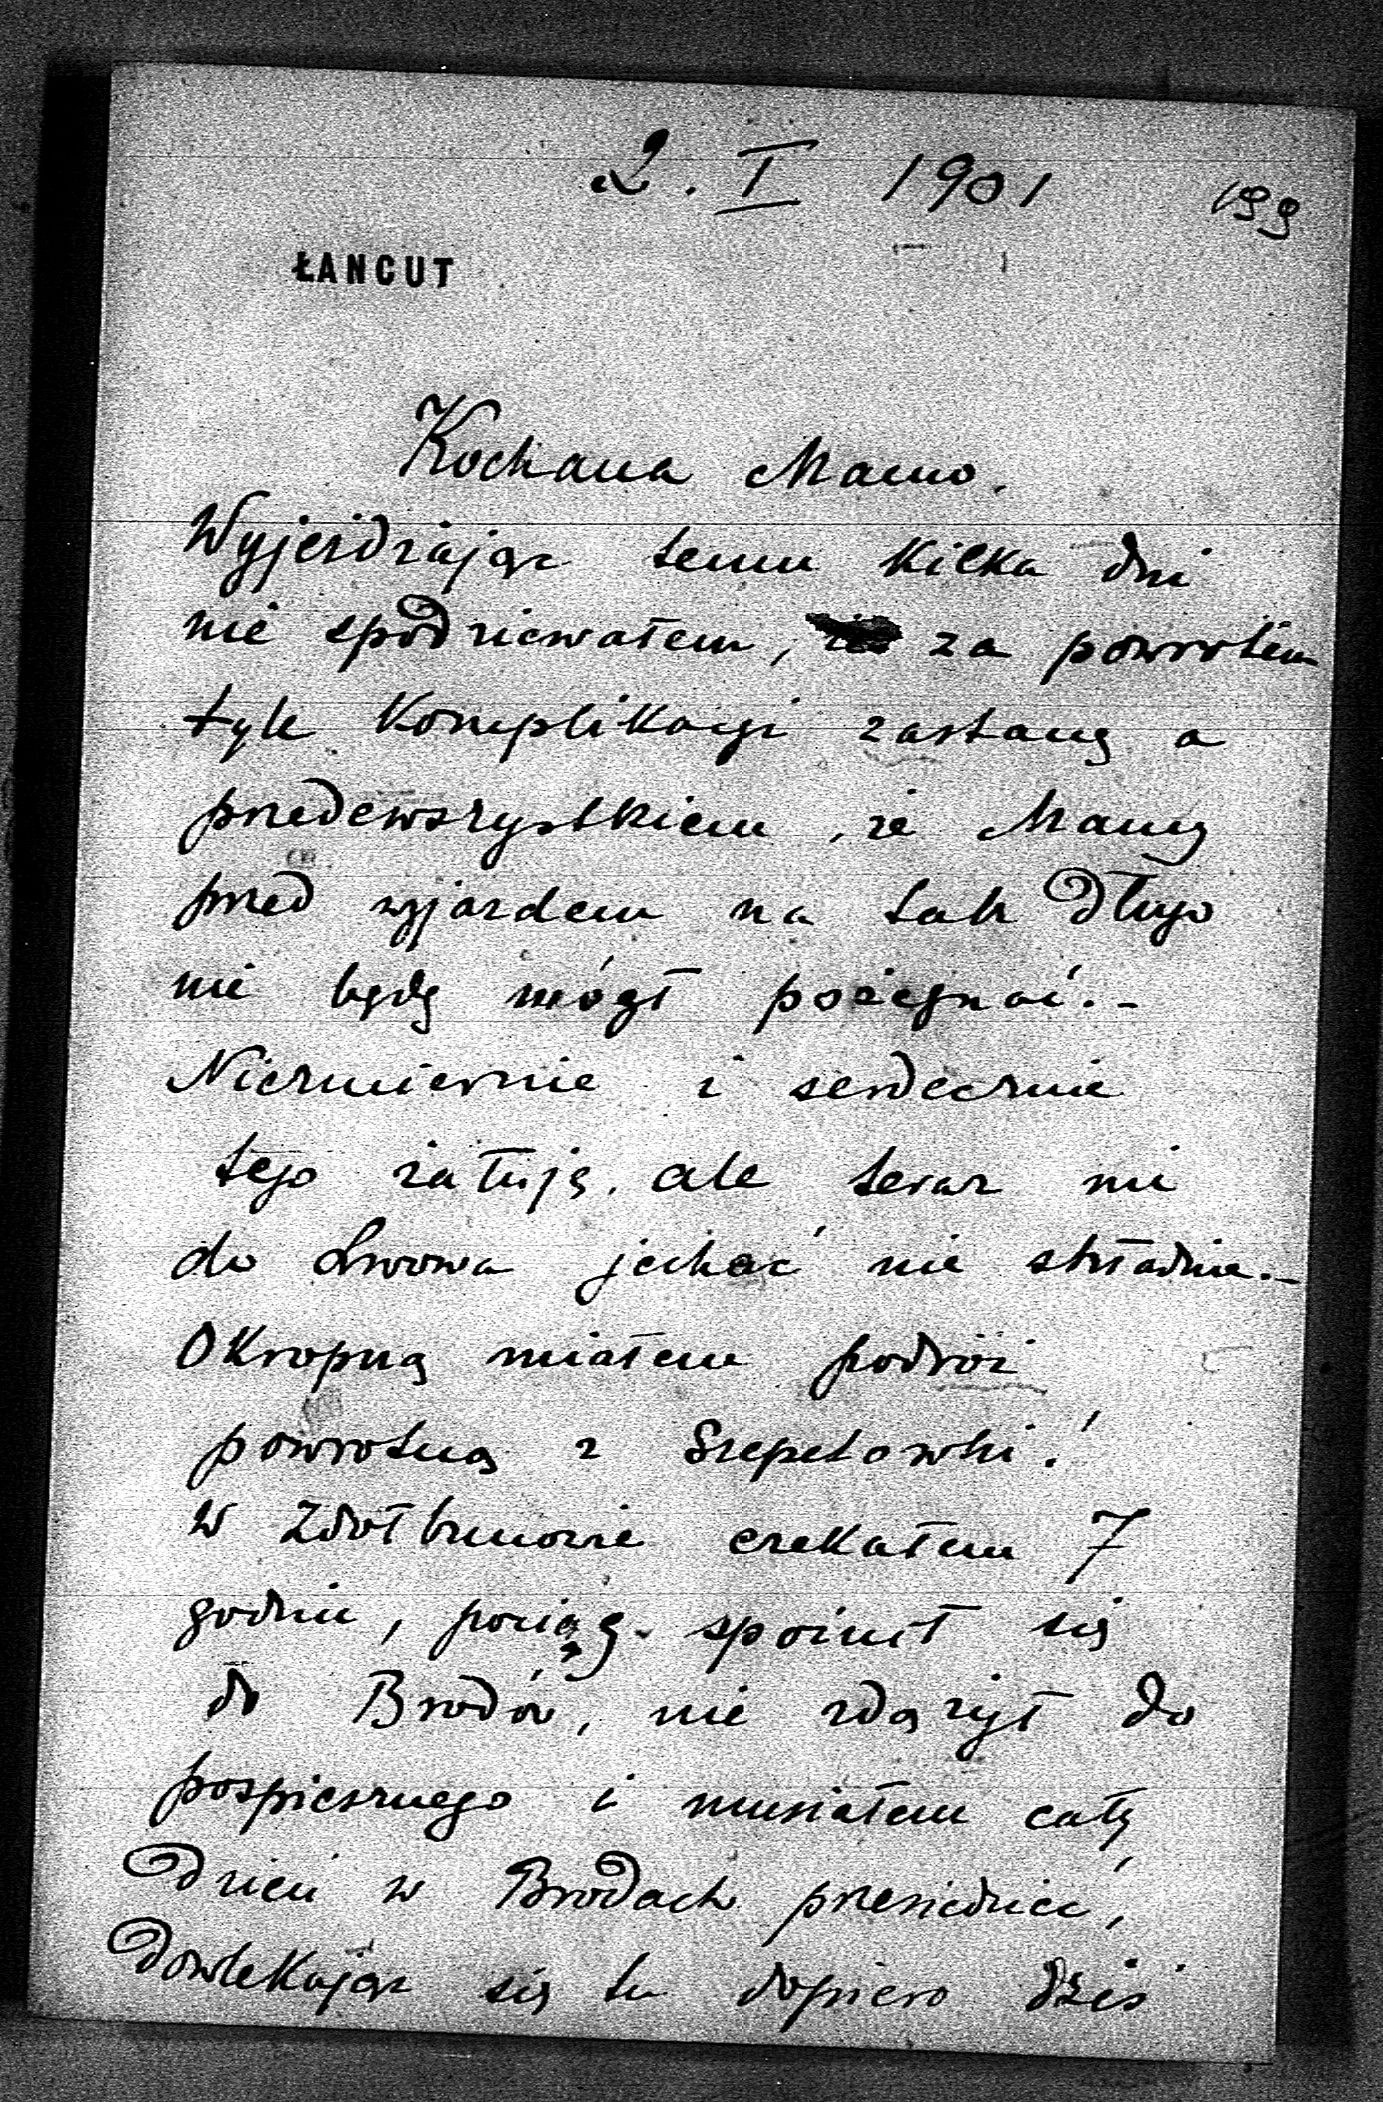 2. I 1901
199
ŁANCUT
Kochana Mamo.
Wyjeżdżając temu kilka dni
nie spodziewałem, że za powrotem
tyle komplikacyi zastanę a
przedewszystkiem, że Mamy
przed wyjazdem na tak długo
nie będę mógł pożegnać. -
Niezmiernie i serdecznie
tego żałuję, ale teraz mi
do Lwowa jechać nie składnie. -
Okropną miałem podróż
powrotną z Szepetowki!
w Zdołbunowie czekałem 7
godzin, pociąg spóźnił się
do Brodów, nie zdążył do
pospiesznego i musiałem cały
dzień w Brodach przesiedzieć,
dowlekając się tu dopiero dziś